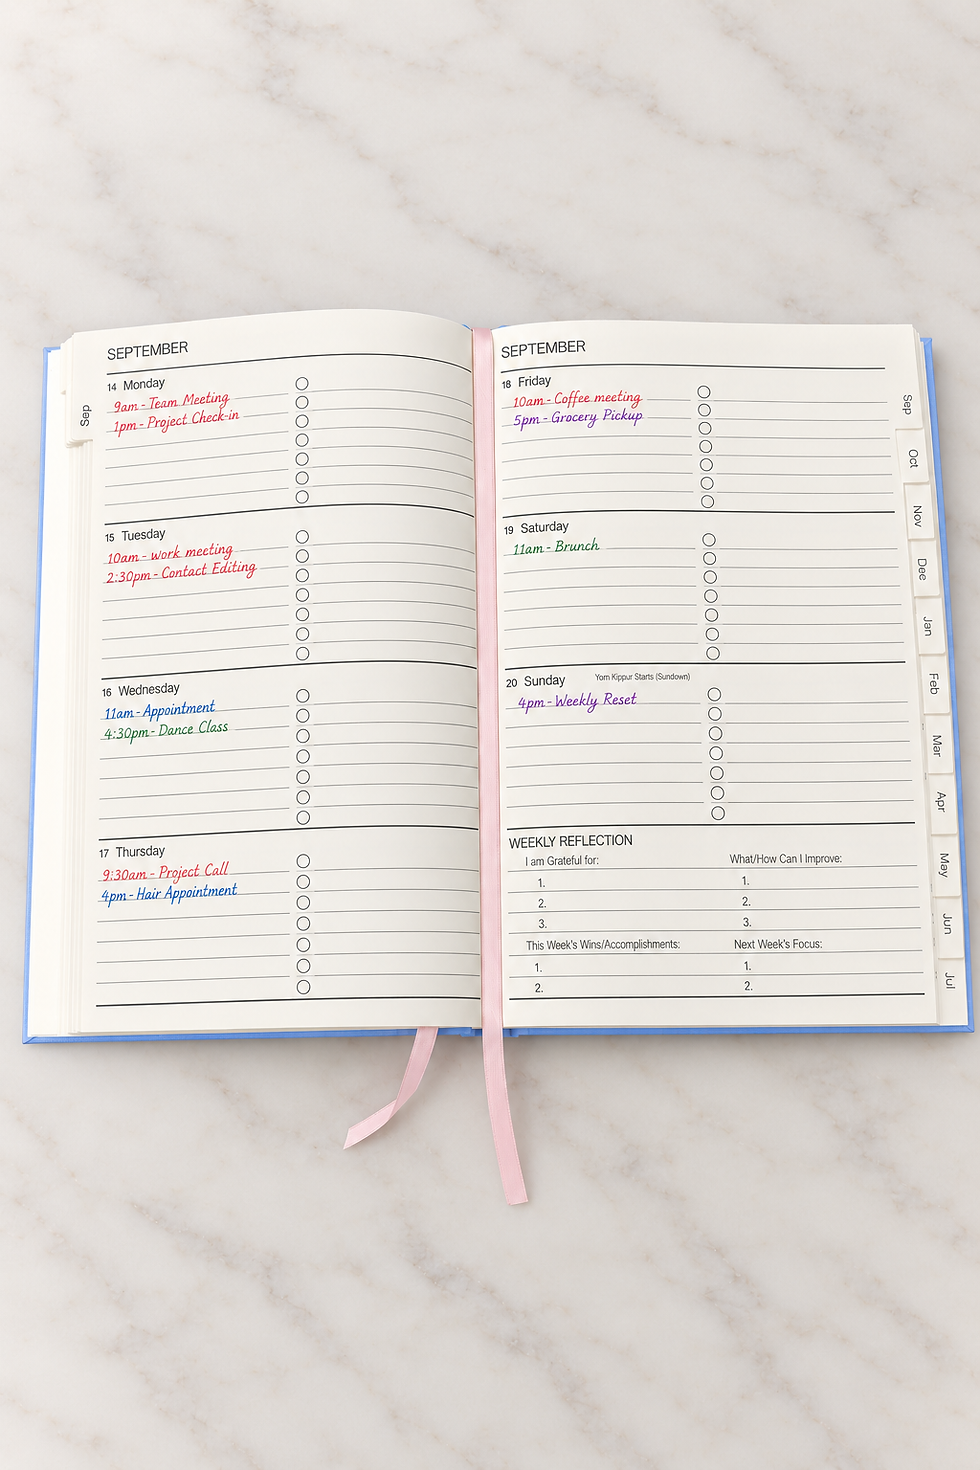 SEPTEMBER
14 Monday
9am - Team Meeting
1pm - Project Check-in
15 Tuesday
10am - work meeting
2:30pm - Contact Editing
16 Wednesday
11am - Appointment
4:30pm - Dance Class
17 Thursday
9:30am - Project Call
4pm - Hair Appointment
Sep
SEPTEMBER
18 Friday
10am - Coffee meeting
5pm - Grocery Pickup
19 Saturday
11am - Brunch
20 Sunday Yom Kippur Starts (Sundown)
4pm - Weekly Reset
WEEKLY REFLECTION
I am Grateful for: What/How Can I Improve:
1. 1.
2. 2.
3. 3.
This Week's Wins/Accomplishments: Next Week's Focus:
1. 1.
2. 2.
Sep
Oct
Nov
Dee
Jan
Feb
Mar
Apr
May
Jun
Jul